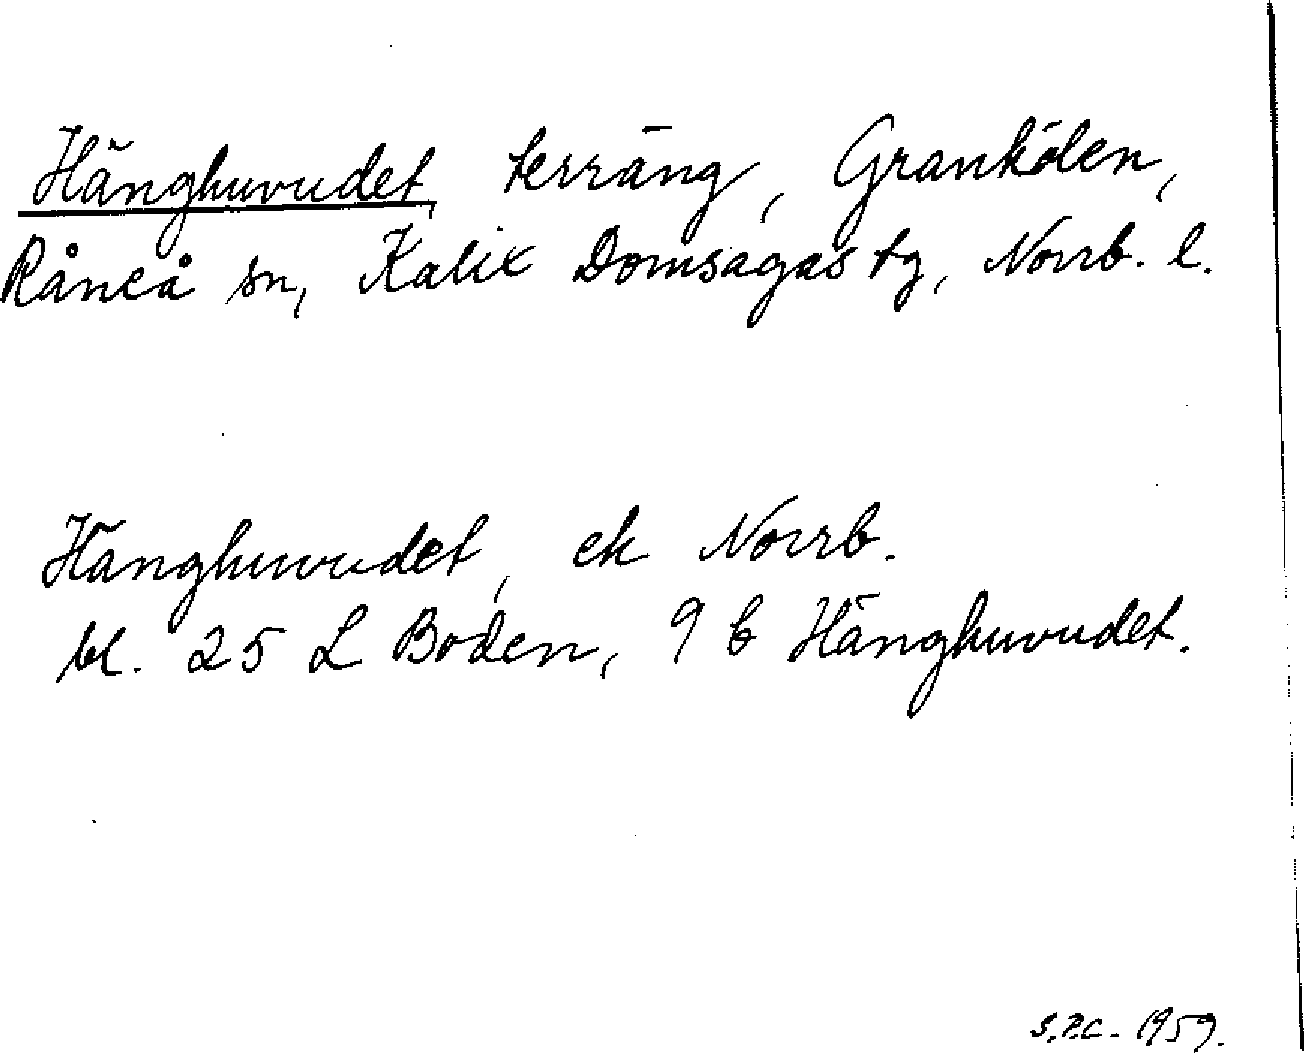 Hänghuvudet, terräng, Grankölen,
Råneå sn, Kalix Domsagas tg, Norrb. l.
Hänghuvudet, ek Norrb.
bl. 25 L Boden, 9 b Hänghuvudet.
S.P.C. 1959.